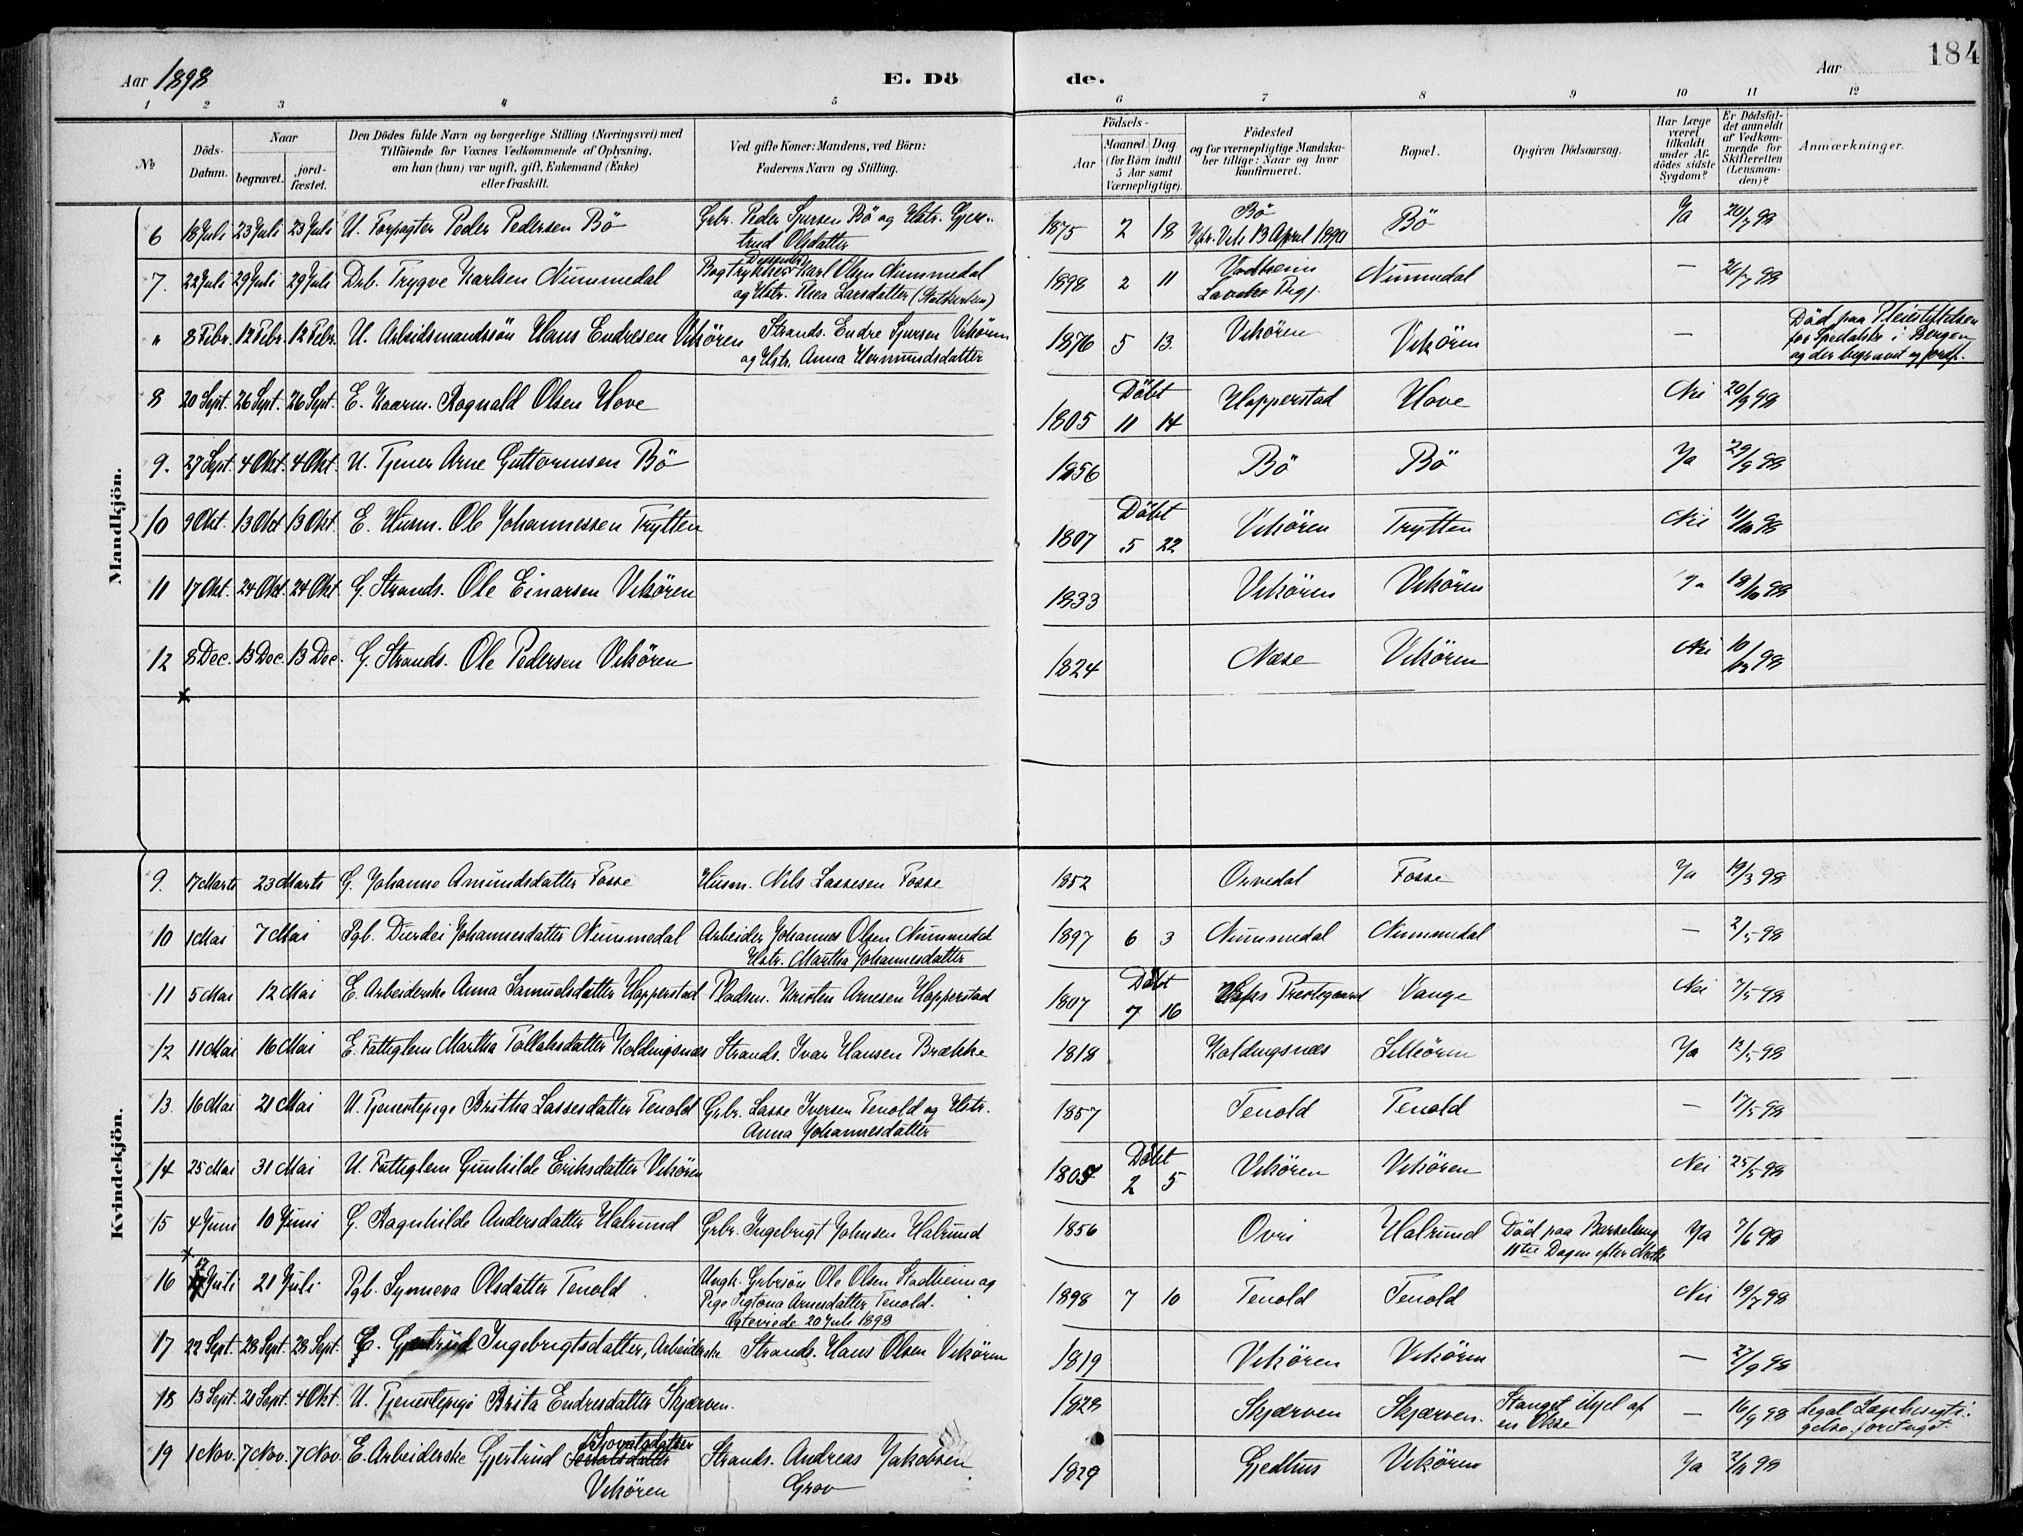 184
Aar 1898
E. Dö
de.
Aar
1 2 3 4 5 6 7 8 9 10 11 12
No
Döds-Datum.
Naar
begravet.
jord-fæstet.
Den Dödes fulde Navn og borgerlige Stilling (Næringsvei) med
Tilföiende for Voxnes Vedkommende af Oplysning,
om han (hun) var ugift, gift, Enkemand (Enke)
eller fraskilt.
Ved gifte Koner: Mandens, ved Börn:
Faderens Navn og Stilling.
Födsels-
Aar
Maaned Dag
(for Börn indtil
5 Aar samt
Værnepligtige).
Födested
og for værnepligtige Mandska-
ber tillige: Naar og hvor
konfirmeret.
Bopæl.
Opgiven Dödsaarsag.
Har Læge
været
tilkaldt
under Af-
dödes sidste
Sygdom?
Er Dödsfal-
det anmeldt
af Vedkom-
mende for
Skifteretten
(Lensman-
den)?
Anmærkninger.
Mandkjön.
6 18 Juli 23 Juli 23 Juli U. Forpagter Peder Pedersen Bö Grbr. Peder Sjursen Bö og Hstr. Gjer-
trud Olsdatter 1875 2 18 Bö
Vik 13 April 1890 Bö Ja 20/7 98
7. 22 Juli 29 Juli 29 Juli Drb. Trygve Karlsen Nummedal Bogtrykker Karl Olsen Nummedal
og Hstr. Thea Larsdatter (Statkirken) 1898 2 11 Vadheim
Lavik Prgj. Nummedal — 26/7 98
" 8 Febr. 12 Febr. 12 Febr. U. Arbeidsmandssön Hans Endresen Vikören Strands. Endre Sjursen Vikören
og Hstr. Anna Hermundsdatter 1876 5 13. Vikören Vikören — Död paa Pleiestiftelsen
for Spedalske i Bergen
og der begravet og jordf.
8 20 Sept. 26 Sept. 26 Sept. E. Kaarm. Ragnald Olsen Hove 1805 Döbt
11 14 Hopperstad Hove Nei 20/9 98
9. 27 Sept. 4 Okt. 4 Okt. U. Tjener Arne Guttormsen Bö 1856 Bö Bö Ja 29/9 98
10 9 Okt. 13 Okt 13 Okt. E. Husm. Ole Johannessen Trytten 1807 Döbt
5 22 Vikören Trytten Nei 11/10 98
11 17 Okt. 24 Okt. 24 Okt G. Strands. Ole Einarsen Vikören 1833 Vikören Vikören Ja 18/10 98
12 8 Dec. 13 Dec. 13 Dec. G. Strands. Ole Pedersen Vikören 1824 Næse Vikören Nei 10/12 98
Kvindekjön.
9. 17 Marts 23 Marts G. Johanne Amundsdatter Fosse Husm. Nels Lassesen Fosse 1852 Orvedal Fosse Ja 19/3 98
10 1 Mai 7 Mai Pgb. Durdei Johannesdatter Nummedal Arbeider Johannes Olsen Nummedal
Hstr. Martha Johannesdatter 1897 6 3 Nummedal Nummedal — 2/5 98
11 5 Mai 12 Mai E. Arbeiderske Anna Samuelsdatter Hopperstad Pladsm. Kristen Arnesen Hopperstad 1807 Döbt
7 16 Prestegaard Vange Nei 7/5 98
12 11 Mai 16 Mai E. Fattiglem Martha Tollaksdatter Koldingsnæs Strands. Ivar Hansen Brække 1818 Koldingsnæs Lilleören Ja 12/5 98
13. 16 Mai 21 Mai U. Tjenestepige Britha Lassesdatter Tenold Grbr. Lasse Iversen Tenold og Hstr.
Anna Johannesdatter 1857 Tenold Tenold — 17/5 98
14 25 Mai 31 Mai U. Fattiglem Gunhilde Eriksdatter Vikören 1805 Döbt
2 5 Vikören Vikören Nei 25/5 98
15 4 Juni 10 Juni G. Ragnhilde Andersdatter Halrund Grbr. Ingebrigt Johnsen Halrund 1856 Ovri Halrund Död paa Barselseng
11te Dagen efter Neds Ja 7/6 98
16 17 Juli 21 Juli Pgb. Synneva Olsdatter Tenold Ungk. Grbrsön Ole Olsen Stadheim og
Pige Sigtona Arnesdatter Tenold.
Ægteviede 20 Juli 1898 1898 7 10 Tenold Tenold Nei 19/7 98
17 22 Sept. 28 Sept. 28 Sept. E. Gjertrud Ingebrigtsdatter, Arbeiderske Strands. Hans Olsen Vikören 1819 Vikören Vikören — 27/9 98
18 13 Sept. 21 Sept. 4 Okt. U. Tjenestepige Brita Endresdatter Skjærven. 1828 Skjærven Skjærven. Stanget ihjel af
en Okse — 16/9 98 Legal Ligbesigti-
gelse foretaget.
19 1 Nov. 7 Nov. 7 Nov. E. Arbeiderske Gjertrud Sjovatsdatter
Vikören Strands. Andreas Jakobsen
Grov 1829 Gjedhus Vikören Ja 2/11 98